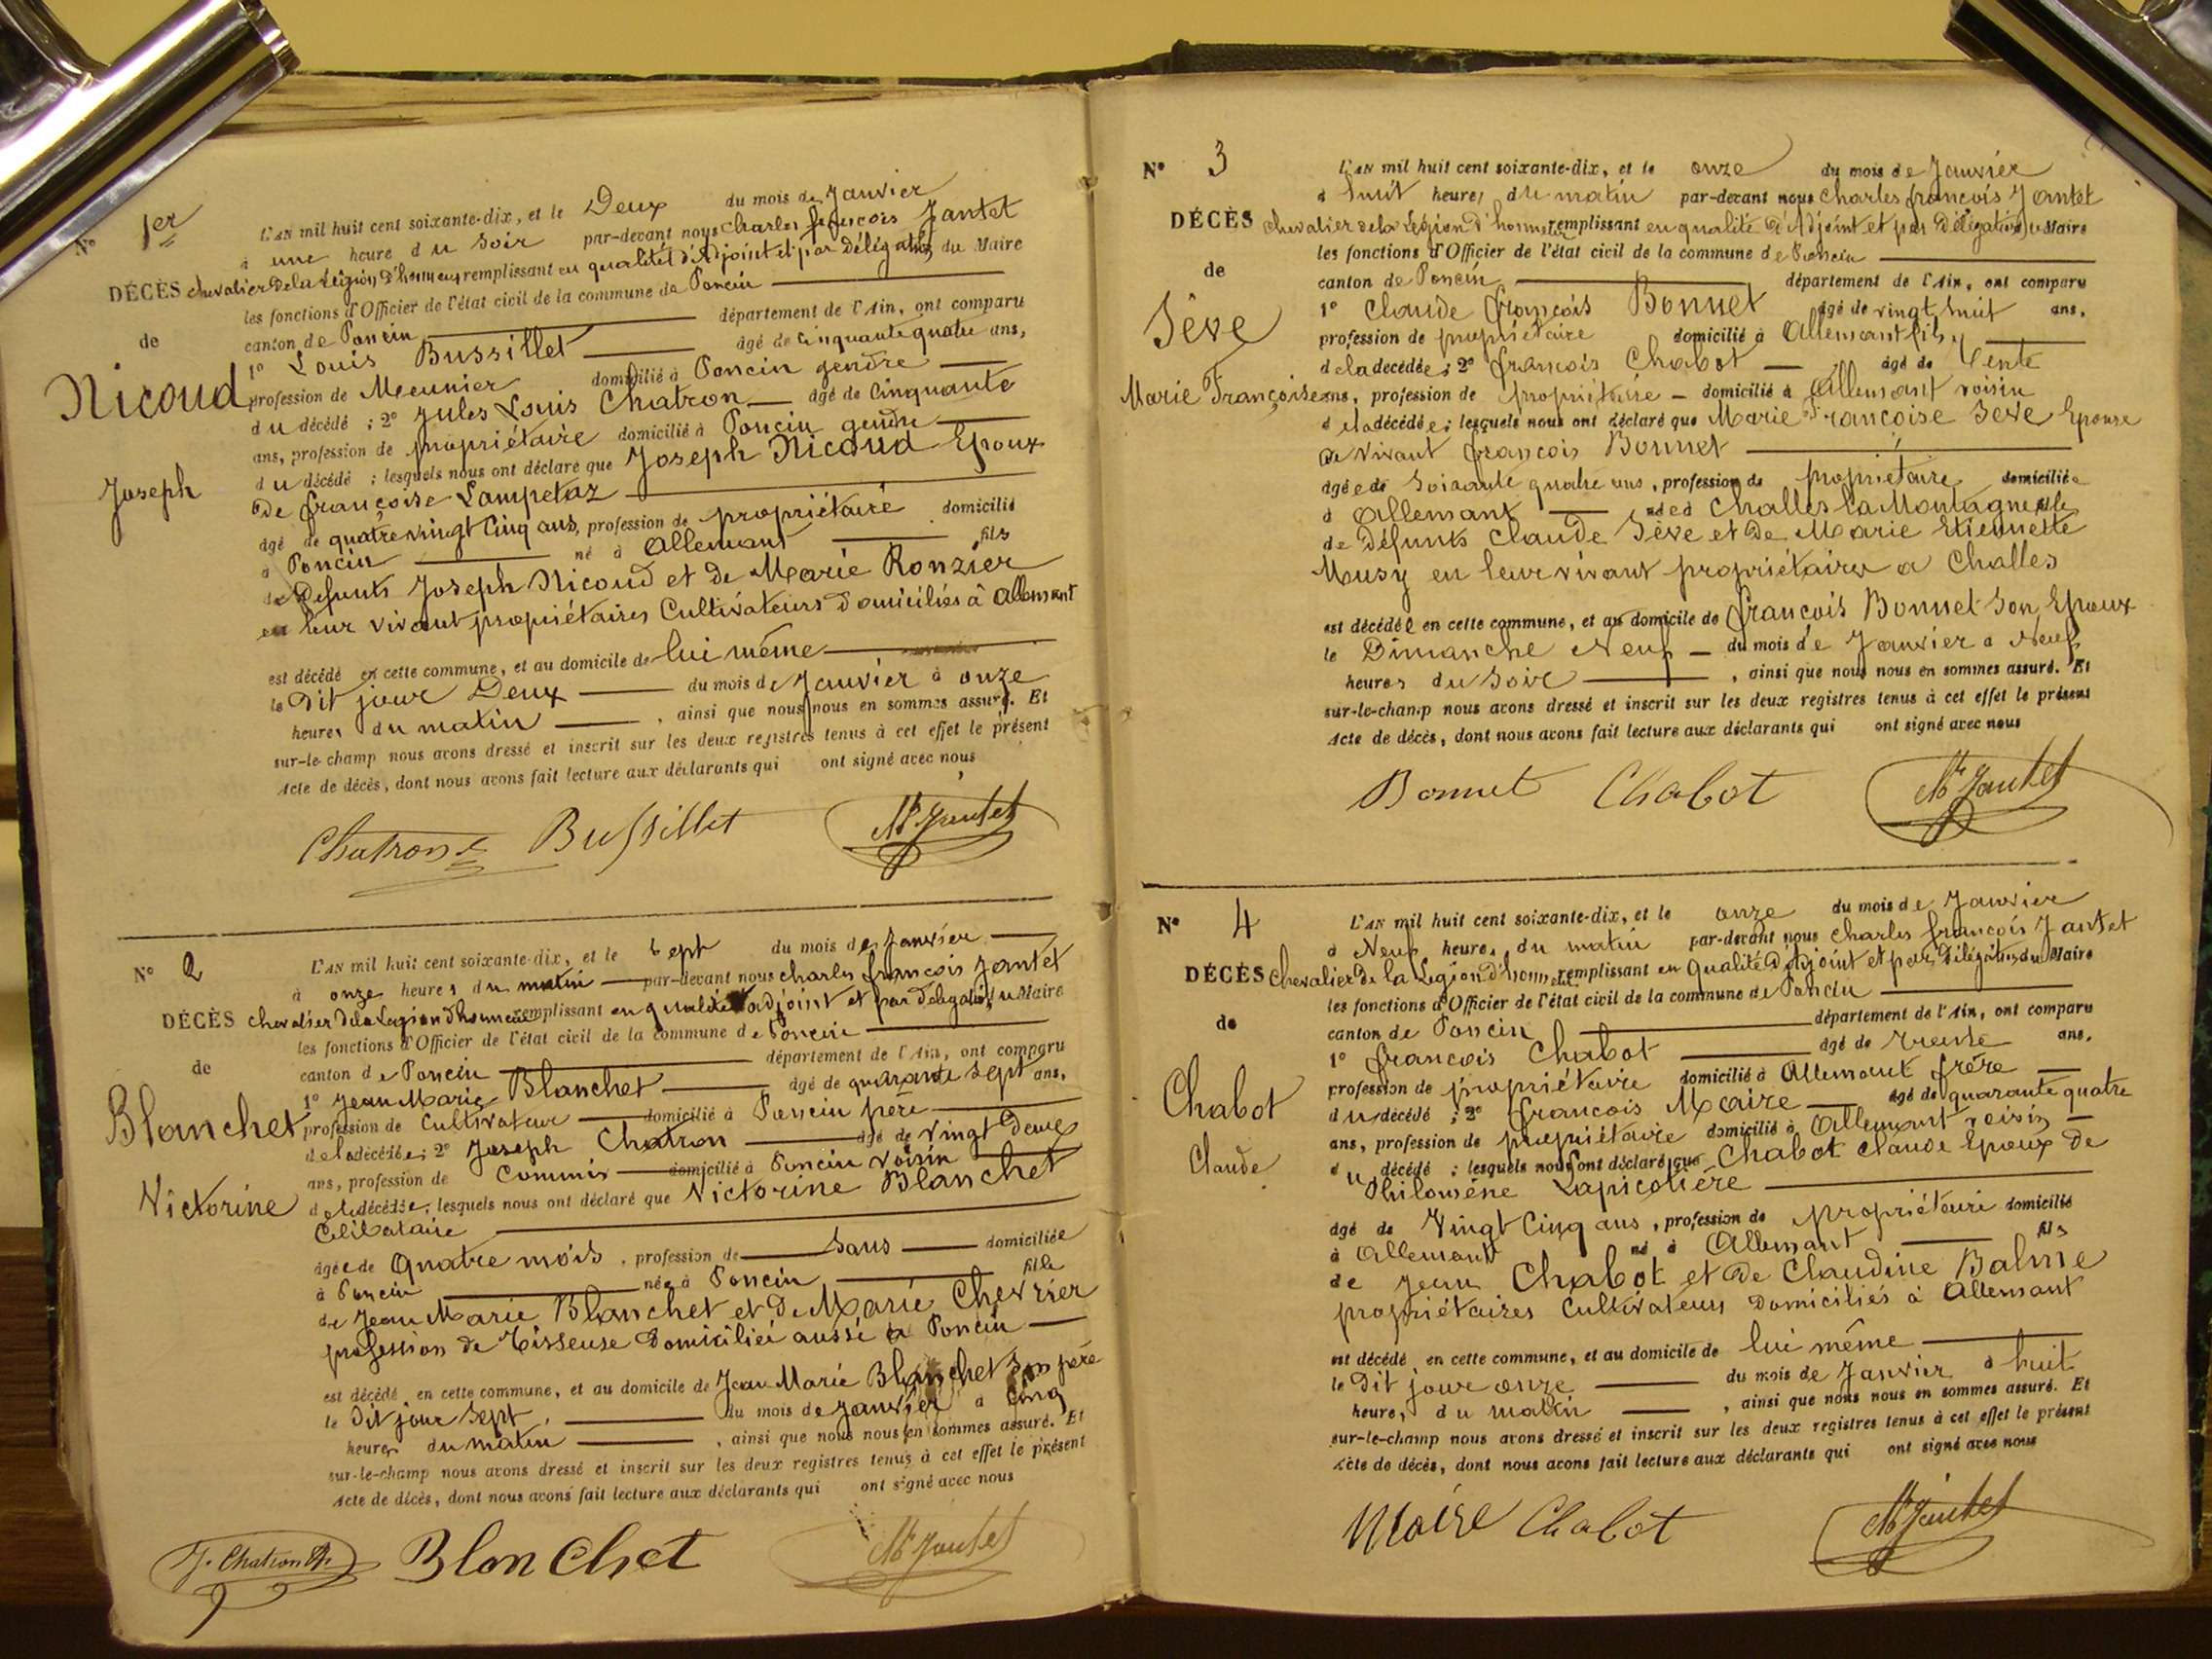 N° 1er
DÉCÈS
de
Nicoud
Joseph
L'AN mil huit cent soixante-dix, et le Deux du mois de Janvier
à une heure du Soir par-devant nous Charles françois Jantet
chevalier de la Légion d'honneur remplissant en qualité d'Adjoint et par Délégation du Maire
les fonctions d'Officier de l'état civil de la commune de Poncin
canton de Poncin département de l'Ain, ont comparu
1° Louis Bussillet âgé de Cinquante quatre ans,
profession de Meunier domicilié à Poncin gendre
du décédé ; 2° Jules Louis Chatron âgé de Cinquante
ans, profession de propriétaire domicilié à Poncin gendre
du décédé ; lesquels nous ont déclaré que Joseph Nicoud Epoux
De françoise Lampetaz
âgé de quatre vingt Cinq ans, profession de propriétaire domicilié
à Poncin né à Allemant fils
de Defunts Joseph Nicoud et de Marie Ronzier
en leur vivant propriétaires Cultivateurs domiciliés à Allemant
est décédé en cette commune, et au domicile de lui même
le Dit jour Deux du mois de Janvier à onze
heures du matin , ainsi que nous nous en sommes assuré. Et
sur-le-champ nous avons dressé et inscrit sur les deux registres tenus à cet effet le présent
Acte de décès, dont nous avons fait lecture aux déclarants qui ont signé avec nous
Chatron Bussillet Jantet
N° 2
DÉCÈS
de
Blanchet
Victorine
L'AN mil huit cent soixante-dix, et le Sept du mois de Janvier
à onze heures du matin par-devant nous charles françois Jantet
chevalier de la Legion d'honneur remplissant en qualité d'adjoint et par Délégation du Maire
les fonctions d'Officier de l'état civil de la commune de Poncin
canton de Poncin département de l'Ain, ont comparu
1° Jean Marie Blanchet âgé de quarante Sept ans,
profession de Cultivateur domicilié à Poncin père
de la décédée; 2° Joseph Chatron âgé de Vingt Deux
ans, profession de Commis domicilié à Poncin voisin
de la décédée; lesquels nous ont déclaré que Victorine Blanchet
Célibataire
âgée de Quatre mois, profession de Sans domiciliée
à Poncin née à Poncin fille
de Jean Marie Blanchet et de Marie Chevrier
profession de Tisseuse Domiciliée aussi à Poncin
est décédé en cette commune, et au domicile de Jean Marie Blanchet Son père
le Dit jour Sept, du mois de Janvier à Cinq
heures du matin , ainsi que nous nous en sommes assuré. Et
sur-le-champ nous avons dressé et inscrit sur les deux registres tenus à cet effet le présent
Acte de décès, dont nous avons fait lecture aux déclarants qui ont signé avec nous
J. Chatron Blanchet Jantet
N° 3
DÉCÈS
de
Sève
Marie Françoise
L'AN mil huit cent soixante-dix, et le onze du mois de Janvier
à huit heures du matin par-devant nous Charles françois Jantet
chevalier de la Légion d'honneur remplissant en qualité d'Adjoint et par Délégation du Maire
les fonctions d'Officier de l'état civil de la commune de Poncin
canton de Poncin département de l'Ain, ont comparu
1° Claude françois Bonnet âgé de vingt huit ans,
profession de propriétaire domicilié à Allemant fils
de la décédée; 2° françois Chabot âgé de Trente
ans, profession de propriétaire domicilié à Allemant voisin
de la décédée; lesquels nous ont déclaré que Marie Françoise Sève Epouse
de vivant françois Bonnet
âgée de Soixante quatre ans, profession de propriétaire domiciliée
à Allemant née à Challes la Montagne fille
de Défunts Claude Sève et de Marie Etiennette
Musy en leur vivant propriétaires à Challes
est décédée en cette commune, et au domicile de françois Bonnet Son Epoux
le Dimanche Neuf du mois de Janvier à Neuf
heures du Soir , ainsi que nous nous en sommes assuré. Et
sur-le-champ nous avons dressé et inscrit sur les deux registres tenus à cet effet le présent
Acte de décès, dont nous avons fait lecture aux déclarants qui ont signé avec nous
Bonnet Chabot Jantet
N° 4
DÉCÈS
de
Chabot
Claude
L'AN mil huit cent soixante-dix, et le onze du mois de Janvier
à Neuf heures du matin par-devant nous Charles françois Jantet
Chevalier de la Légion d'honneur remplissant en Qualité d'Adjoint et par Délégation du Maire
les fonctions d'Officier de l'état civil de la commune de Poncin
canton de Poncin département de l'Ain, ont comparu
1° françois Chabot âgé de Trente ans,
profession de propriétaire domicilié à Allemant frère
du décédé ; 2° françois Maire âgé de quarante quatre
ans, profession de propriétaire domicilié à Allemant voisin
du décédé ; lesquels nous ont déclaré que Chabot Claude Epoux de
Philomène Lapicotière
âgé de Vingt Cinq ans, profession de propriétaire domicilié
à Allemant né à Allemant fils
de Jean Chabot et de Claudine Balme
propriétaires Cultivateurs Domiciliés à Allemant
est décédé en cette commune, et au domicile de lui même
le Dit jour onze du mois de Janvier à huit
heures du matin , ainsi que nous nous en sommes assuré. Et
sur-le-champ nous avons dressé et inscrit sur les deux registres tenus à cet effet le présent
Acte de décès, dont nous avons fait lecture aux déclarants qui ont signé avec nous
Maire Chabot Jantet